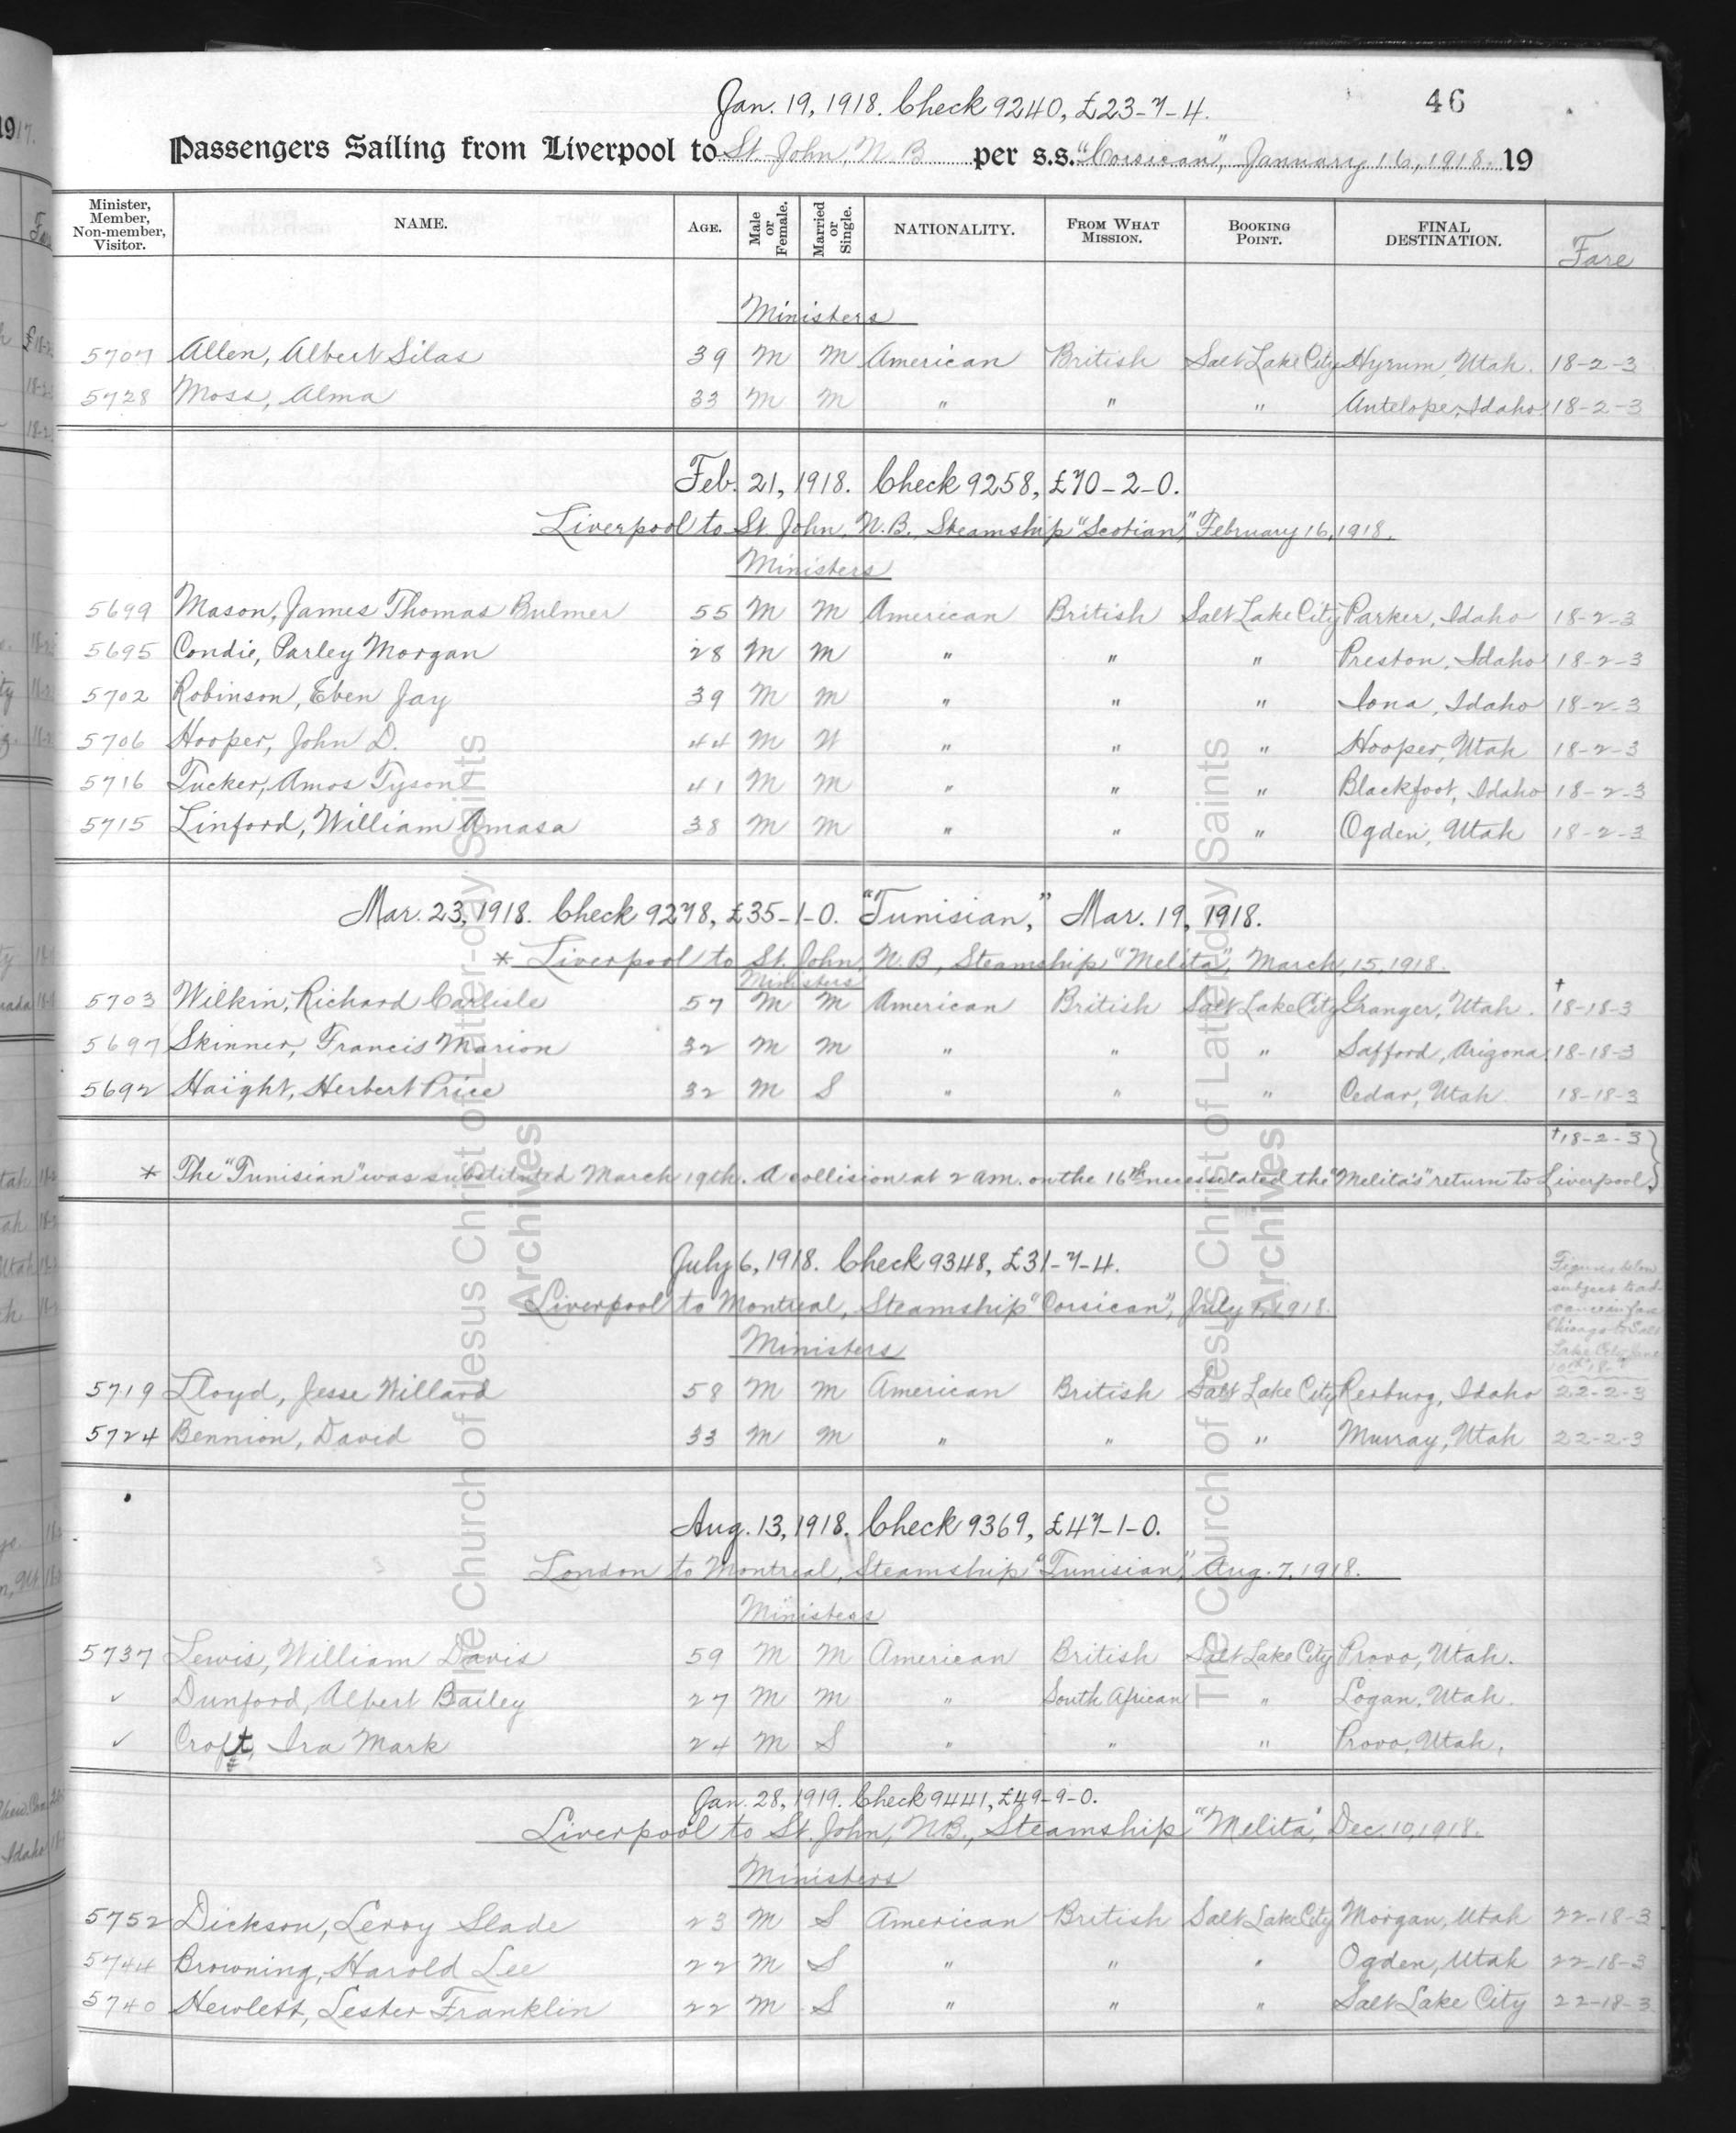 Jan. 19, 1918. Check 9240, £23-7-4. 46
Passengers Sailing from Liverpool to St. John, N. B. per s.s. "Corsican", January 16, 1918. 19
Minister, Member, Non-member, Visitor. NAME. AGE. Male or Female. Married or Single. NATIONALITY. FROM WHAT MISSION. BOOKING POINT. FINAL DESTINATION. Fare
Ministers
5707 Allen, Albert Silas 39 M M American British Salt Lake City Hyrum, Utah. 18-2-3
5728 Moss, Alma 33 M M " " " Antelope, Idaho. 18-2-3
Feb. 21, 1918. Check 9258, £70-2-0.
Liverpool to St. John, N.B., Steamship "Scotian", February 16, 1918.
Ministers
5699 Mason, James Thomas Bulmer 55 M M American British Salt Lake City Parker, Idaho 18-2-3
5695 Condie, Parley Morgan 28 M M " " " Preston, Idaho 18-2-3
5702 Robinson, Eben Jay 39 M M " " " Iona, Idaho 18-2-3
5706 Hooper, John D. 44 M W " " " Hooper, Utah 18-2-3
5716 Tucker, Amos Tyson 41 M M " " " Blackfoot, Idaho 18-2-3
5715 Linford, William Amasa 38 M M " " " Ogden, Utah 18-2-3
Mar. 23, 1918. Check 9278, £35-1-0. "Tunisian," Mar. 19, 1918.
* Liverpool to St. John, N.B., Steamship "Melita", March, 15, 1918.
Ministers
5703 Wilkin, Richard Carlisle 57 M M American British Salt Lake City Granger, Utah. † 18-18-3
5697 Skinner, Francis Marion 32 M M " " " Safford, Arizona 18-18-3
5692 Haight, Herbert Price 32 M S " " " Cedar, Utah 18-18-3
† 18-2-3
* The "Tunisian" was substituted March 19th. A collision at 2 am. on the 16th necessitated the "Melita's" return to Liverpool.
July 6, 1918. Check 9348, £31-7-4.
Liverpool to Montreal, Steamship "Corsican", July 1, 1918.
Figures below
subject to ad-
vance in fare
Chicago to Salt
Lake City June
Ministers
5719 Lloyd, Jesse Willard 58 M M American British Salt Lake City Rexburg, Idaho 22-2-3
5724 Bennion, David 33 M M " " " Murray, Utah 22-2-3
Aug. 13, 1918. Check 9369, £47-1-0.
London to Montreal, Steamship "Tunisian", Aug. 7, 1918.
Ministers
5737 Lewis, William Davis 59 M M American British Salt Lake City Provo, Utah.
✓ Dunford, Albert Bailey 27 M M " South African " Logan, Utah.
✓ Croft, Ira Mark 24 M S " " " Provo, Utah.
Jan. 28, 1919. Check 9441, £49-9-0.
Liverpool to St. John, N.B., Steamship "Melita", Dec. 10, 1918.
Ministers
5752 Dickson, Leroy Slade 23 M S American British Salt Lake City Morgan, Utah 22-18-3
5744 Browning, Harold Lee 22 M S " " " Ogden, Utah 22-18-3
5740 Hewlett, Lester Franklin 22 M S " " " Salt Lake City 22-18-3
The Church of Jesus Christ of Latter-day Saints
Archives
The Church of Jesus Christ of Latter-day Saints
Archives